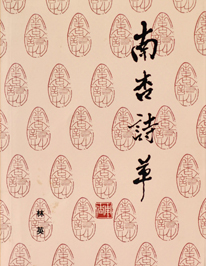 南杏詩草
林英